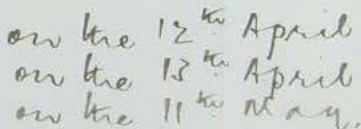 on the 12th April
on the 13th April
on the 11th May.